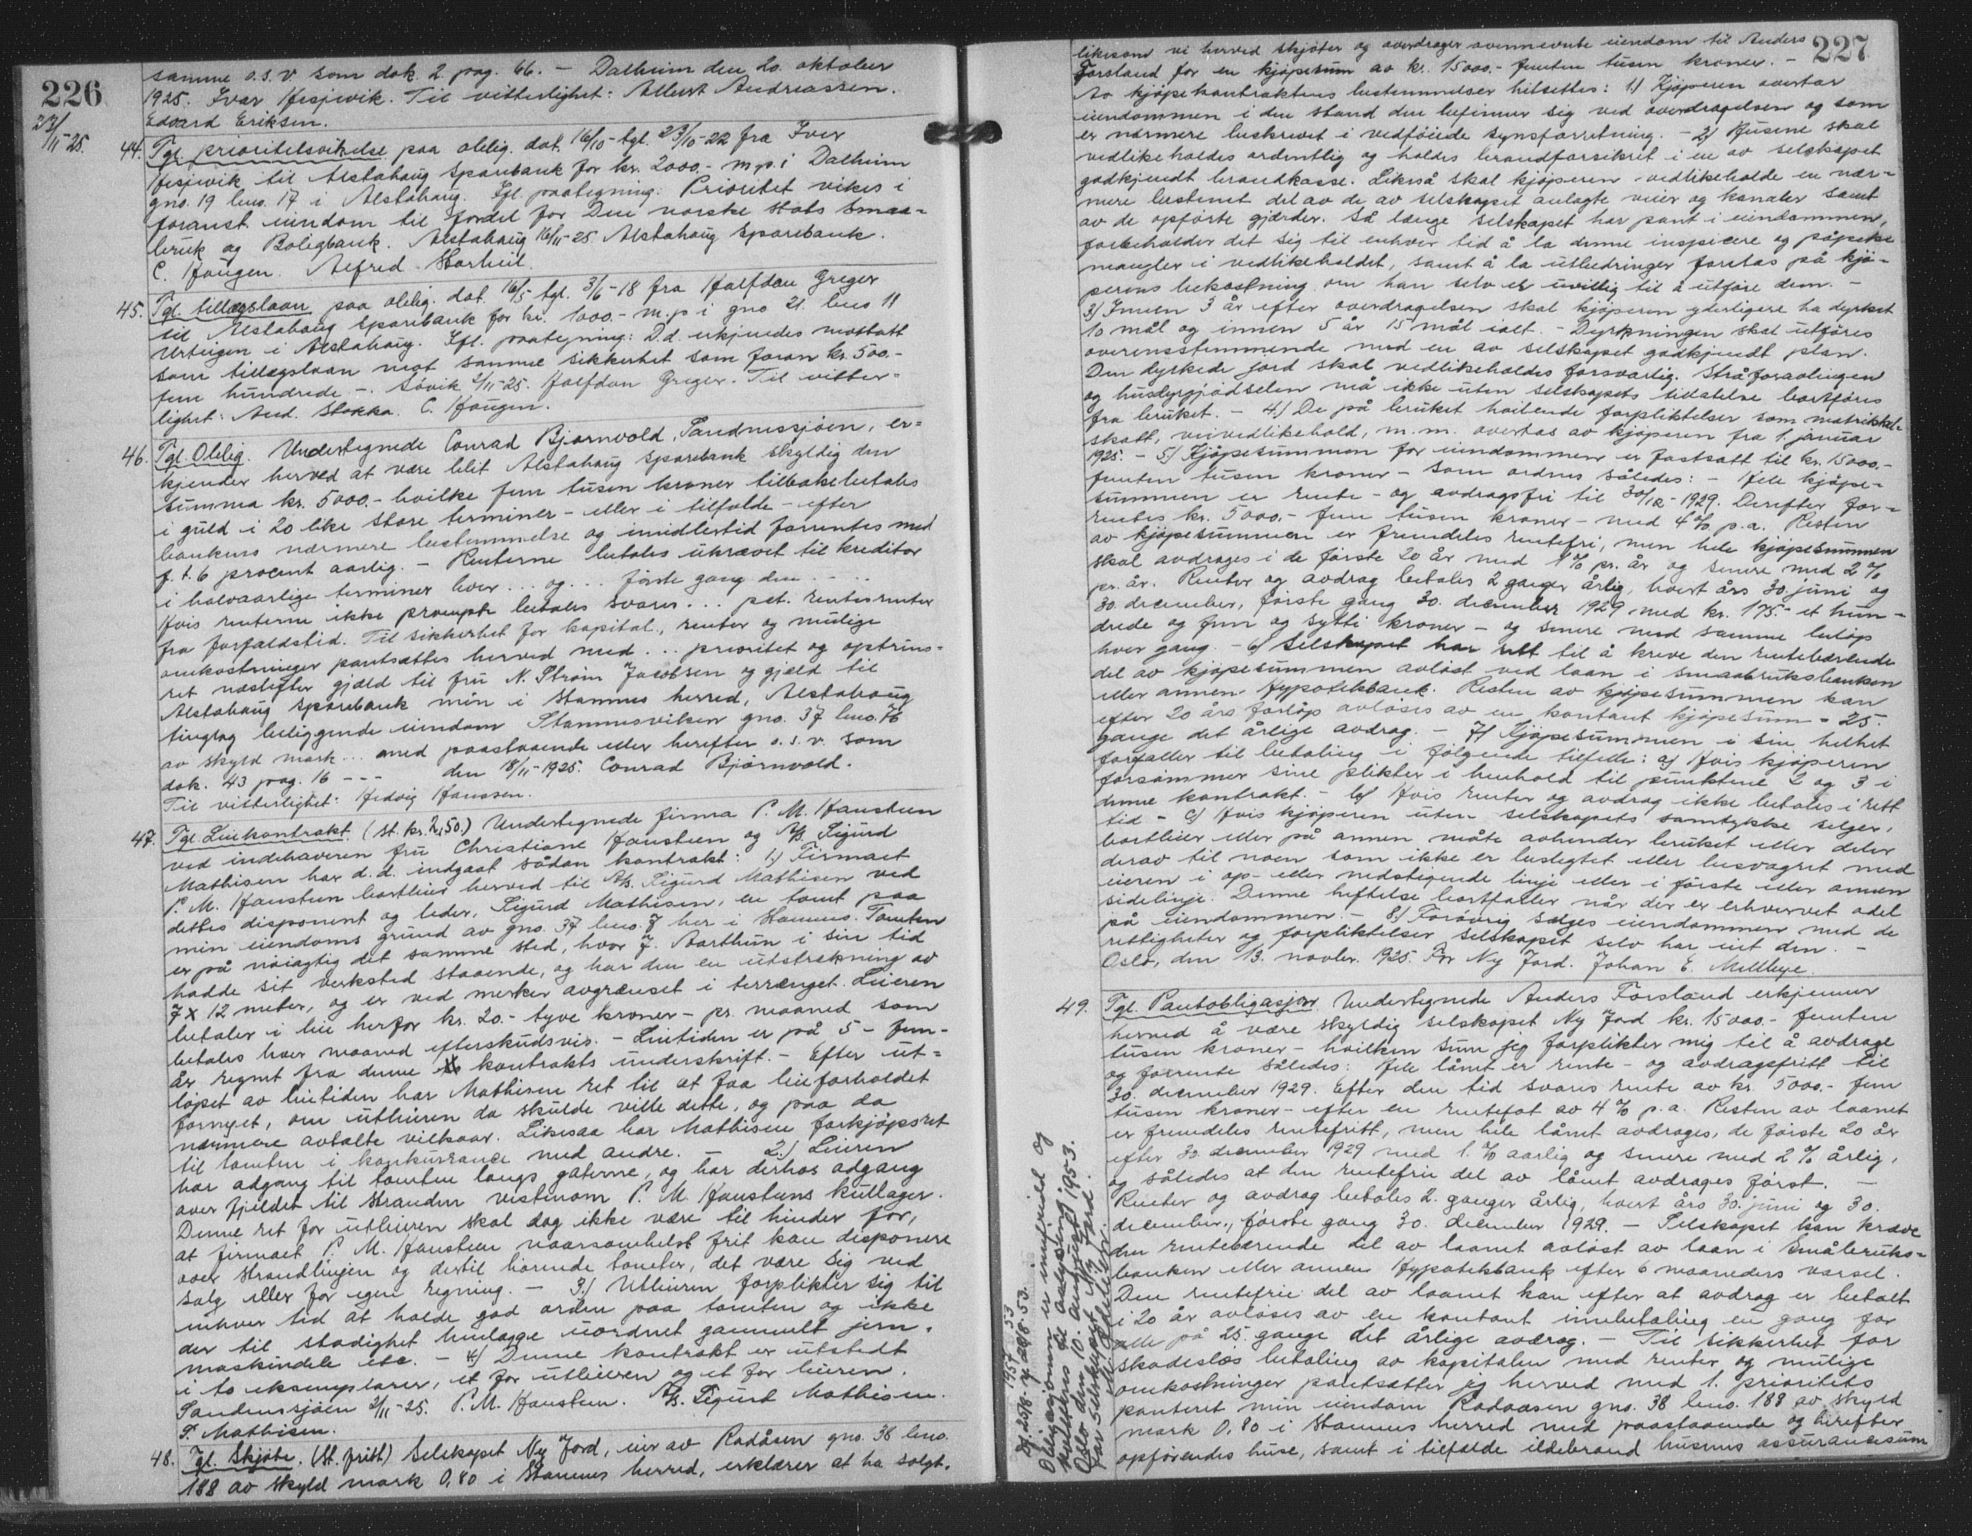 226
23/11-25.
samme o.s.v. som dok. 2. pag. 66. — Dalheim den 20. oktober
1925. Ivar Hesjevik. Til vitterlighet: Albert Andreassen.
Edvard Eriksen.
44. Tgl. prioritetsvikelse paa oblig. dat. 16/10- tgl. 23/10-22 fra Iver
Hesjevik til Alstahaug Sparebank for kr. 2000.- m.p. i Dalheim
gno. 19 bno. 17 i Alstahaug. Sfl. paategning: Prioritet vikes i
foranst. eiendom til fordel for Den norske stats Smaa=
bruk og Boligbank. Alstahaug 16/11-25 Alstahaug Sparebank.
C. Haugen. Alfred Storheil.
45. Tgl. tillægslaan paa oblig. dat. 16/5- tgl. 3/6-18 fra Halfdan Greger
til Alstahaug Sparebank for kr. 1000.- m.p. i gno 21. bno 11
Urteigen i Alstahaug. Sfl. paategning: D.d. erkjendes mottatt
som tillægslaan mot samme sikkerhet som foran kr. 500.-
fem hundrede —. Søvik 2/11-25. Halfdan Greger. Til vitter=
lighet: And. Stokka. C. Haugen.
46. Tgl. Oblig. Undertegnede Conrad Bjørnvold, Sandnessjøen, er=
kjender herved at være blit Alstahaug Sparebank skyldig den
summa kr. 5000.- hvilke fem tusen kroner tilbakebetales
i guld i 20 like store terminer - eller i tilfælde - efter
bankens nærmere bestemmelse og imidlertid forrentes med
f.t. 6 procent aarlig. — Renterne betales ukrævet til kreditor
i halvaarlige terminer hver . . og . . . første gang den . . . .
Hvis renterne ikke prompte betales svares . . . pct. rentesrenter
fra forfaldstid. Til sikkerhet for kapital, renter og mulige
omkostninger pantsættes herved med . . . prioritet og optrins=
ret næstefter gjæld til fru N. Strøm Jacobsen og gjæld til
Alstahaug Sparebank min i Stamnes herred, Alstahaug
tinglag beliggende eiendom Stamnesviken gno. 37 bno. 76
av skyld mark . . . med paastaaende eller herefter o.s.v. som
dok. 43 pag. 16 - - - den 18/11-1925. Conrad Bjørnvold.
Til vitterlighet: Hedvig Hanssen.
47. Tgl. Leiekontrakt. (St. kr. 2,50.) Undertegnede firma P. M. Hansteen
ved indehaveren fru Christiane Hansteen og A/S Sigurd
Mathisen har d.d. indgaat sådan kontrakt: 1.) Firmaet
P. M. Hansteen bortleier herved til A/S. Sigurd Mathisen ved
dettes disponent og leder, Sigurd Mathisen, en tomt paa
min eiendoms grund av gno. 37 bno. 7 her i Stamnes. Tomten
er på nøiagtig det samme sted, hvor J. Aarthun i sin tid
hadde sit verksted staaende, og har den en utstrekning av
7 x 12 meter, og er ved merker avgrænset i terrænget. Leieren
betaler i leie herfor kr. 20.- tyve kroner - pr. maaned som
betales hver maaned efterskudsvis. — Leietiden er på 5 - fem -
år regnet fra denne kontrakts underskrift. — Efter ut=
løpet av leietiden har Mathisen ret til at faa leieforholdet
fornyet, om utleieren da skulde ville dette, og paa da
nærmere avtalte vilkaar. Likesaa har Mathisen forkjøpsret
til tomten i konkurrance med andre. — 2.) Leieren
har adgang til tomten langs gaterne, og har derhos adgang
over fjeldet til stranden vestenom P. M. Hansteens kullager.
Denne ret for utleieren skal dog ikke være til hinder for,
at firmaet P. M. Hansteen naarsomhelst frit kan disponere
over strandlinjen og dertil hørende tomter, det være sig ved
salg eller for egen regning. — 3.) Utleieren forplikter sig til
enhver tid at holde god orden paa tomten og ikke
der til stadighet henlægge uordnet gammelt jern,
maskindele etc. — 4.) Denne kontrakt er utstedt
i to eksemplarer, et for utleieren og et for leieren.
Sandnessjøen 2/11-25. P. M. Hansteen. A/S. Sigurd Mathisen.
S. Mathisen.
48. Tgl. Skjøte. (St. fritt.) Selskapet Ny Jord, eier av Radåsen gno. 38 bno.
188 av skyld mark 0,80 i Stamnes herred, erklærer at ha solgt,
227
likesom vi herved skjøter og overdrager ovennevnte eiendom til Anders
Forsland for en kjøpesum av kr. 15000.- femten tusen kroner. —
Av kjøpekontraktens bestemmelser hitsettes: 1.) Kjøperen overtar
eiendommen i den stand den befinner sig ved overdragelsen og som
er nærmere beskrevet i vedføiede synsforretning. — 2.) Husene skal
vedlikeholdes ordentlig og holdes brandforsikret i en av selskapet
godkjendt brandkasse. Likeså skal kjøperen vedlikeholde en nær=
mere bestemt del av de av selskapet anlagte veier og kanaler samt
av de opførte gjærder. Så længe selskapet har pant i eiendommen,
forbeholder det sig til enhver tid å la denne inspicere og påpeke
mangler i vedlikeholdet, samt å la utbedringer foretas på kjø=
perens bekostning om han selv er uvillig til å utføre dem. —
3.) Innen 3 år efter overdragelsen skal kjøperen yderligere ha dyrket
10 mål og innen 5 år 15 mål ialt. — Dyrkningen skal utføres
overensstemmende med en av selskapet godkjendt plan.
Den dyrkede jord skal vedlikeholdes forsvarlig. Stråforavlingen
og husdyrgjødselen må ikke uten selskapets tillatelse bortføres
fra bruket. — 4.) De på bruket hvilende forpliktelser som matrikkel=
skatt, veivedlikehold, m.m. overtas av kjøperen fra 1. januar
1925. — 5.) Kjøpesummen for eiendommen er fastsatt til kr. 15000.-
femten tusen kroner - som ordnes således: — Hele kjøpe=
summen er rente- og avdragsfri til 30/12-1929. Derefter for=
rentes kr. 5000.- fem tusen kroner - med 4% p.a. Resten
av kjøpesummen er fremdeles rentefri, men hele kjøpesummen
skal avdrages i de første 20 år med 1% pr. år og senere med 2%
pr. år. Renter og avdrag betales 2 ganger årlig, hvert års 30. juni og
30. december, første gang 30. december 1929 med kr. 175.- et hun=
drede og fem og sytti kroner - og senere med samme beløp
hver gang. — 6.) Selskapet har rett til å kreve den rentebærende
del av kjøpesummen avløst ved laan i Smaabruksbanken
eller annen Hypotekbank. Resten av kjøpesummen kan
efter 20 års forløp avløses av en kontant kjøpesum = 25.
gange det årlige avdrag. — 7.) Kjøpesummen i sin helhet
forfaller til betaling i følgende tilfelle: a) Hvis kjøperen
forsømmer sine plikter i henhold til punktene 2 og 3 i
denne kontrakt. — b) Hvis renter og avdrag ikke betales i rett
tid — c) Hvis kjøperen uten selskapets samtykke selger,
bortleier eller på annen måte avhender bruket eller deler
derav til noen som ikke er beslegtet eller besvogret med
eieren i op- eller nedstigende linje eller i første eller annen
sidelinje. Denne heftelse bortfaller når der er erhvervet odel
på eiendommen. — 8.) Forøvrig sælges eiendommen med de
rettigheter og forpliktelser selskapet selv har eiet den. —
Oslo, den 13. novbr. 1925. For Ny Jord. Johan E. Mellbye.
49. Tgl. Pantobligasjon. Undertegnede Anders Forsland erkjenner
herved å være skyldig selskapet Ny Jord kr. 15000.- femten
tusen kroner - hvilken sum jeg forplikter mig til å avdrage
og forrente således: Hele lånet er rente- og avdragsfritt til
30. december 1929. Efter den tid svares rente av kr. 5000.- fem
tusen kroner - efter en rentefot av 4% p.a. Resten av laanet
er fremdeles rentefritt, men hele lånet avdrages, de første 20 år
efter 30 december 1929 med 1.% aarlig og senere med 2% årlig,
og således at den rentefrie del av lånet avdrages først. —
Renter og avdrag betales 2 ganger årlig, hvert års 30. juni og 30.
december, første gang 30. december 1929. — Selskapet kan kræve
den rentebærende del av laanet avløst av laan i Småbruks=
banken eller annen Hypotekbank efter 6 maaneders varsel.
Den rentefrie del av laanet kan efter at avdrag er betalt
i 20 år avløses av en kontant innbetaling en gang for
alle på 25 gange det årlige avdrag. — Til sikkerhet for
skadesløs betaling av kapitalen med renter og mulige
omkostninger pantsætter jeg herved med 1. prioritets
panteret min eiendom Radaasen gno. 38 bno. 188 av skyld
mark 0,80 i Stamnes herred med paastaaende og herefter
opførendes huse, samt i tilfælde ildebrand husenes assurancesum
Obligasjonen er innfridd og
kvitteres til avlysning.
Oslo den 10. august 1953.
for Selskapet Ny Jord.